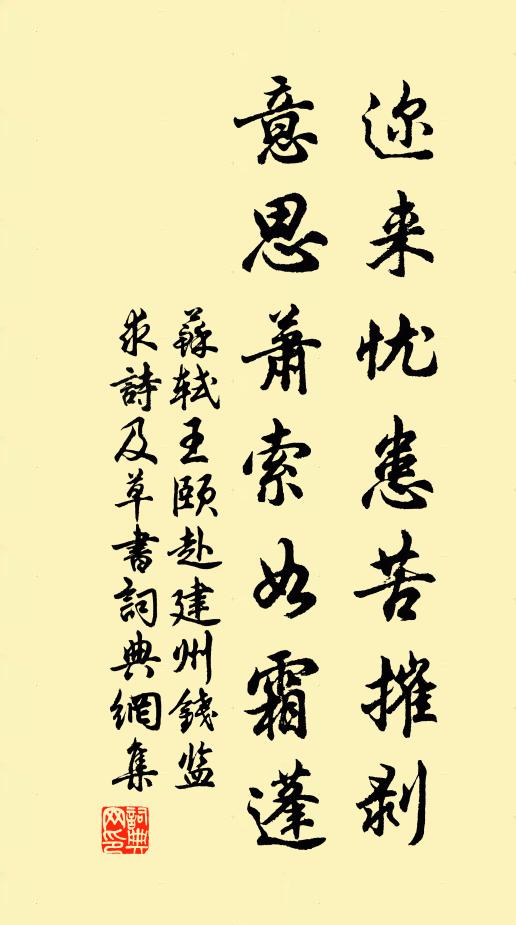 迩来忧患苦摧剥
意思萧索如霜蓬
蘇轼王颐赴建州錢监
求詩及草書詞典網集
詞典网印